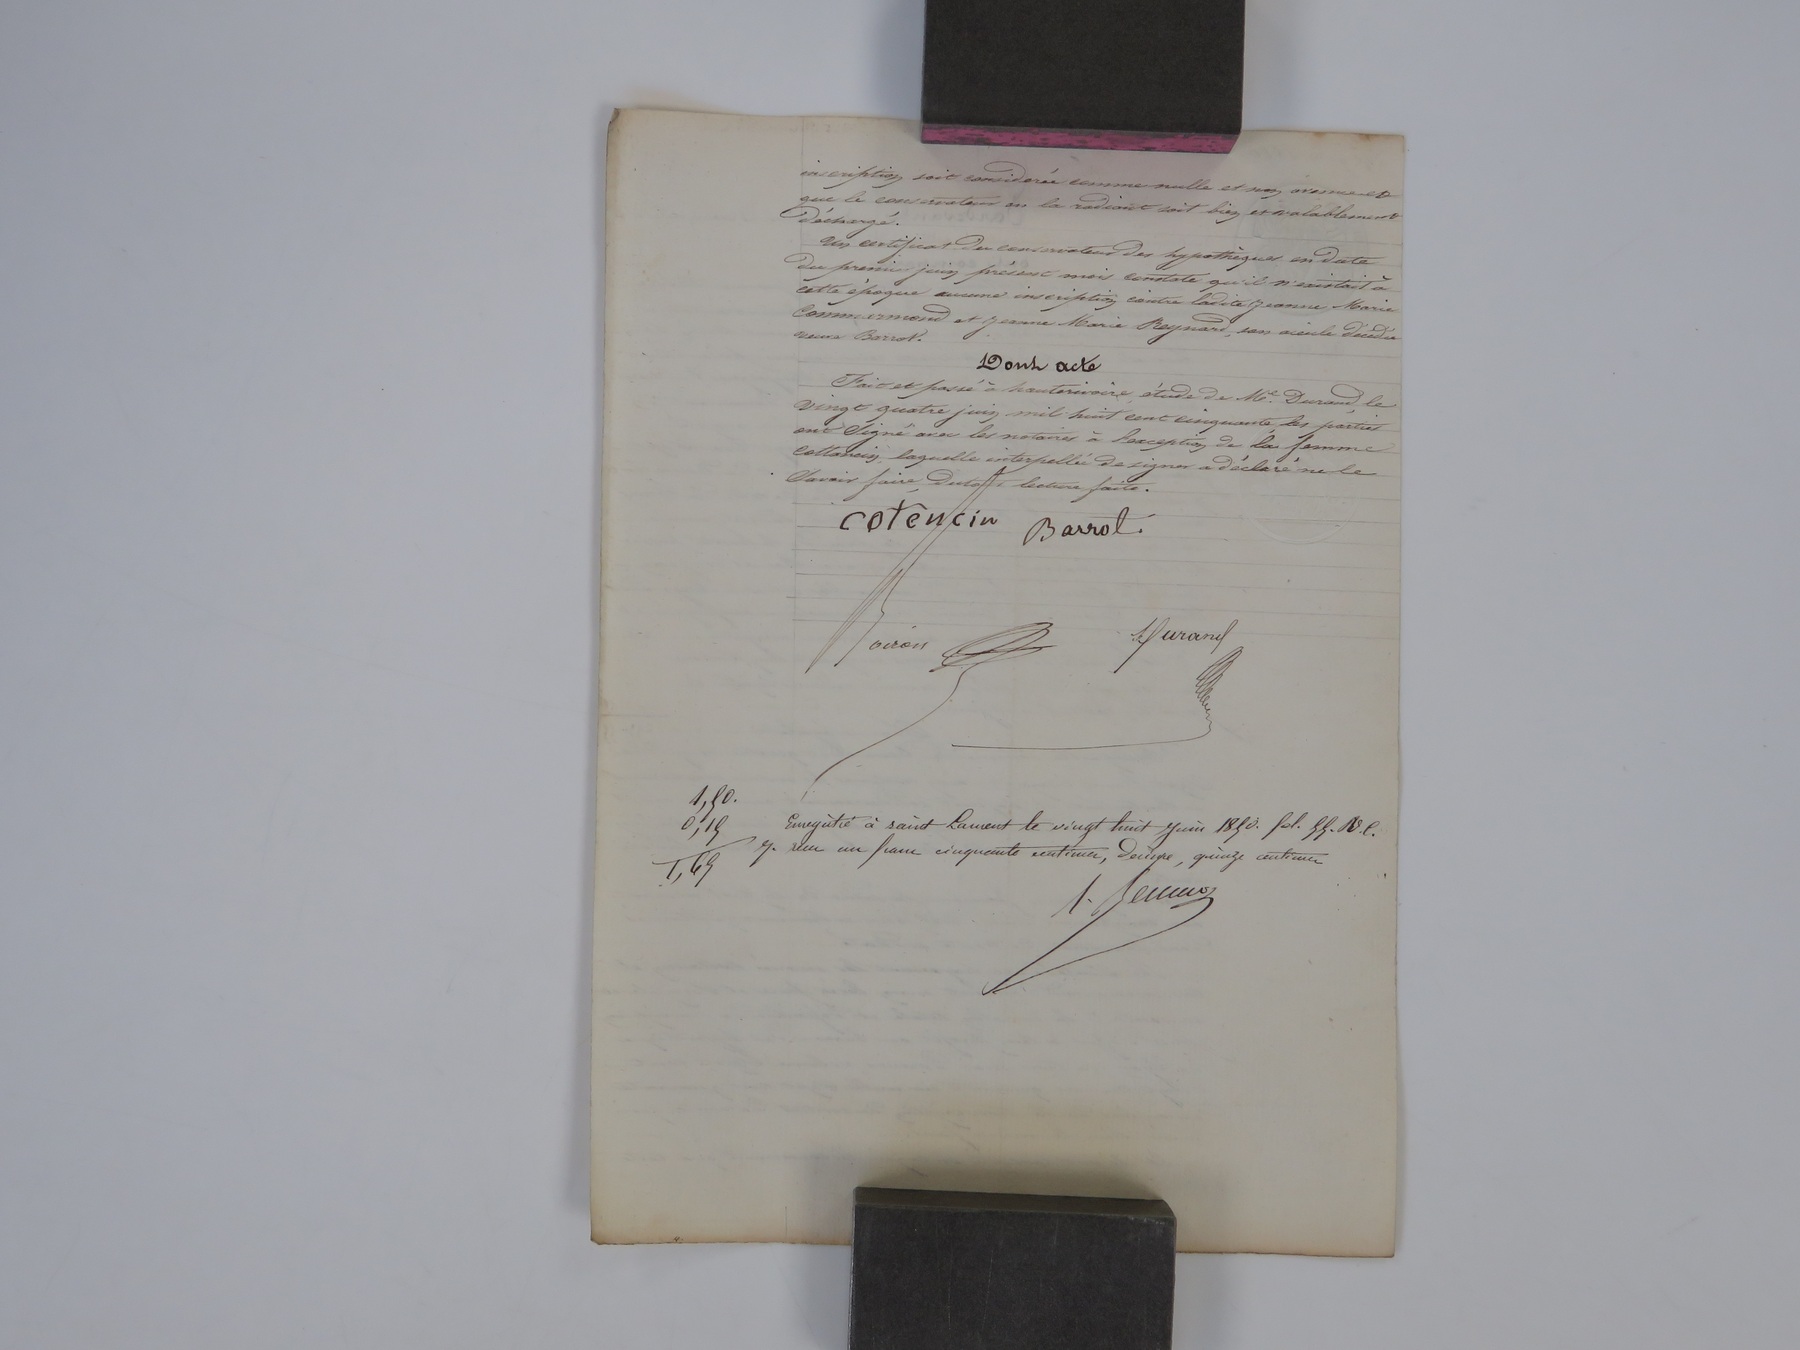 inscription soit considérée comme nulle et non avenue et
que le conservateur en la radiant soit bien et valablement
déchargé.
Un certificat du conservateur des hypothèques en date
du premier juin présent mois constate qu'il n'existait à
cette époque aucune inscription contre ladite Jeanne Marie
Commermond et Jeanne Marie Reynard, son aieule décédée
veuve Barrot.
Dont acte
Fait et passé à hauterivoire, étude de Me. Durand, le
vingt quatre juin mil huit cent cinquante, les parties
ont signé avec les notaires à l'exception de la femme
cottancin, laquelle interpellée de signer a déclaré ne le
savoir faire, de tout lecture faite.
cotencin Barrot.
Voiron Durand
1,50.
0,15
1,65
Enregistré à saint Laurent le vingt huit Juin 1850. fol. 55. Vo. c.
7. reçu un franc cinquante centimes, décime, quinze centimes